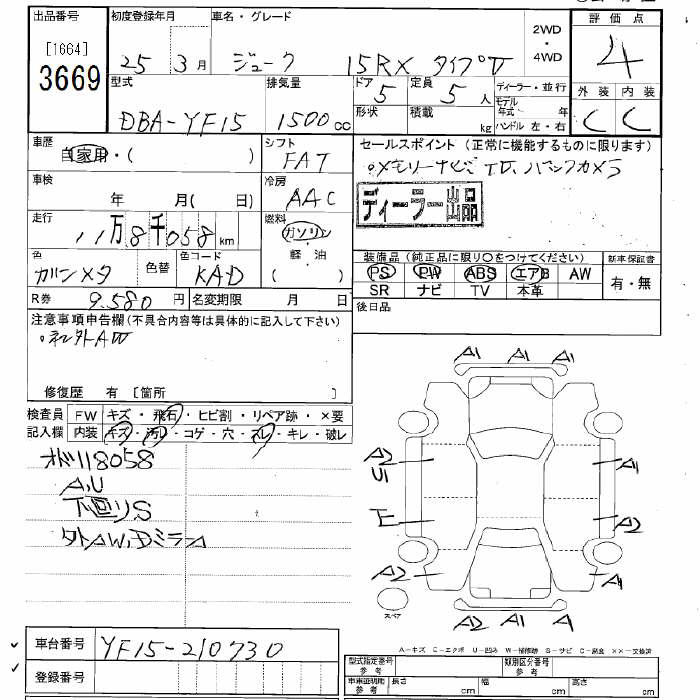 出品番号
[1664]
3669
初度登録年月
25 3月
車名・グレード
ジューク 15RX タイプV
2WD
・
4WD
評価点
4
外装 内装
C C
型式
DBA-YF15
排気量
1500cc
ドア
5
定員
5人
形状
積載
kg
ディーラー・並行
モデル年式 年
ハンドル 左・右
車歴
自家用・( )
シフト
FAT
車検
年 月( 日)
冷房
AAC
走行
11万8千058km
燃料
ガソリン
軽・油
( )
色
ガンメタ
色替
色コード
KAD
R券
9.580円
名変期限 月 日
セールスポイント (正常に機能するものに限ります)
。メモリーナビ TV、バックカメラ
ディーラー出品
装備品 (純正品に限り○をつけてください)
PS PW ABS エアB AW
SR ナビ TV 本革
新車保証書
有・無
後日品
注意事項申告欄(不具合内容等は具体的に記入して下さい)
修復歴 有 [箇所 ]
検査員
記入欄
FW キズ・飛石・ヒビ割・リペア跡・×要
内装 キズ・汚レ・コゲ・穴・スレ・キレ・破レ
118058
A,U
下回りS
外AW,DミラーA
A1 A1 A1
A2
U1
A1
A2
A2
A1
A2 A1 A
スペア
車台番号
YF15-210730
登録番号
A-キズ C-エクボ U-凹み W-補修跡 S-サビ C-腐食 ××-交換済
型式指定番号
参考
類別区分番号
参考
車庫証明用
参考
長さ cm
幅 cm
高さ cm